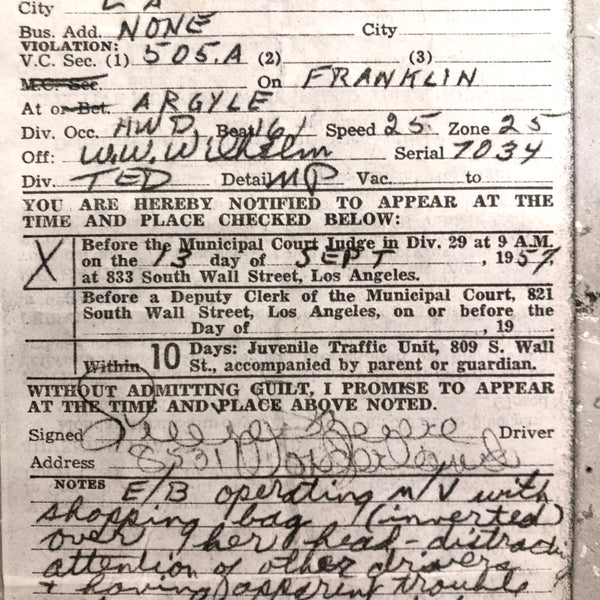 City L A
Bus. Add. NONE City
VIOLATION:
V.C. Sec. (1) 505.A (2) (3)
M.C. Sec. On FRANKLIN
At or Bet. ARGYLE
Div. Occ. HWD. Beat 161 Speed 25 Zone 25
Off: W.W. Wilhelm Serial 7034
Div. TED Detail MP Vac. to
YOU ARE HEREBY NOTIFIED TO APPEAR AT THE
TIME AND PLACE CHECKED BELOW:
X Before the Municipal Court Judge in Div. 29 at 9 A.M.
on the 13 day of SEPT, 1957,
at 833 South Wall Street, Los Angeles.
Before a Deputy Clerk of the Municipal Court, 821
South Wall Street, Los Angeles, on or before the
Day of , 19
Within 10 Days: Juvenile Traffic Unit, 809 S. Wall
St., accompanied by parent or guardian.
WITHOUT ADMITTING GUILT, I PROMISE TO APPEAR
AT THE TIME AND PLACE ABOVE NOTED.
Signed Driver
Address
NOTES E/B operating M/V with
shopping bag (inverted)
over her head - distracting
attention of other drivers
+ having apparent trouble